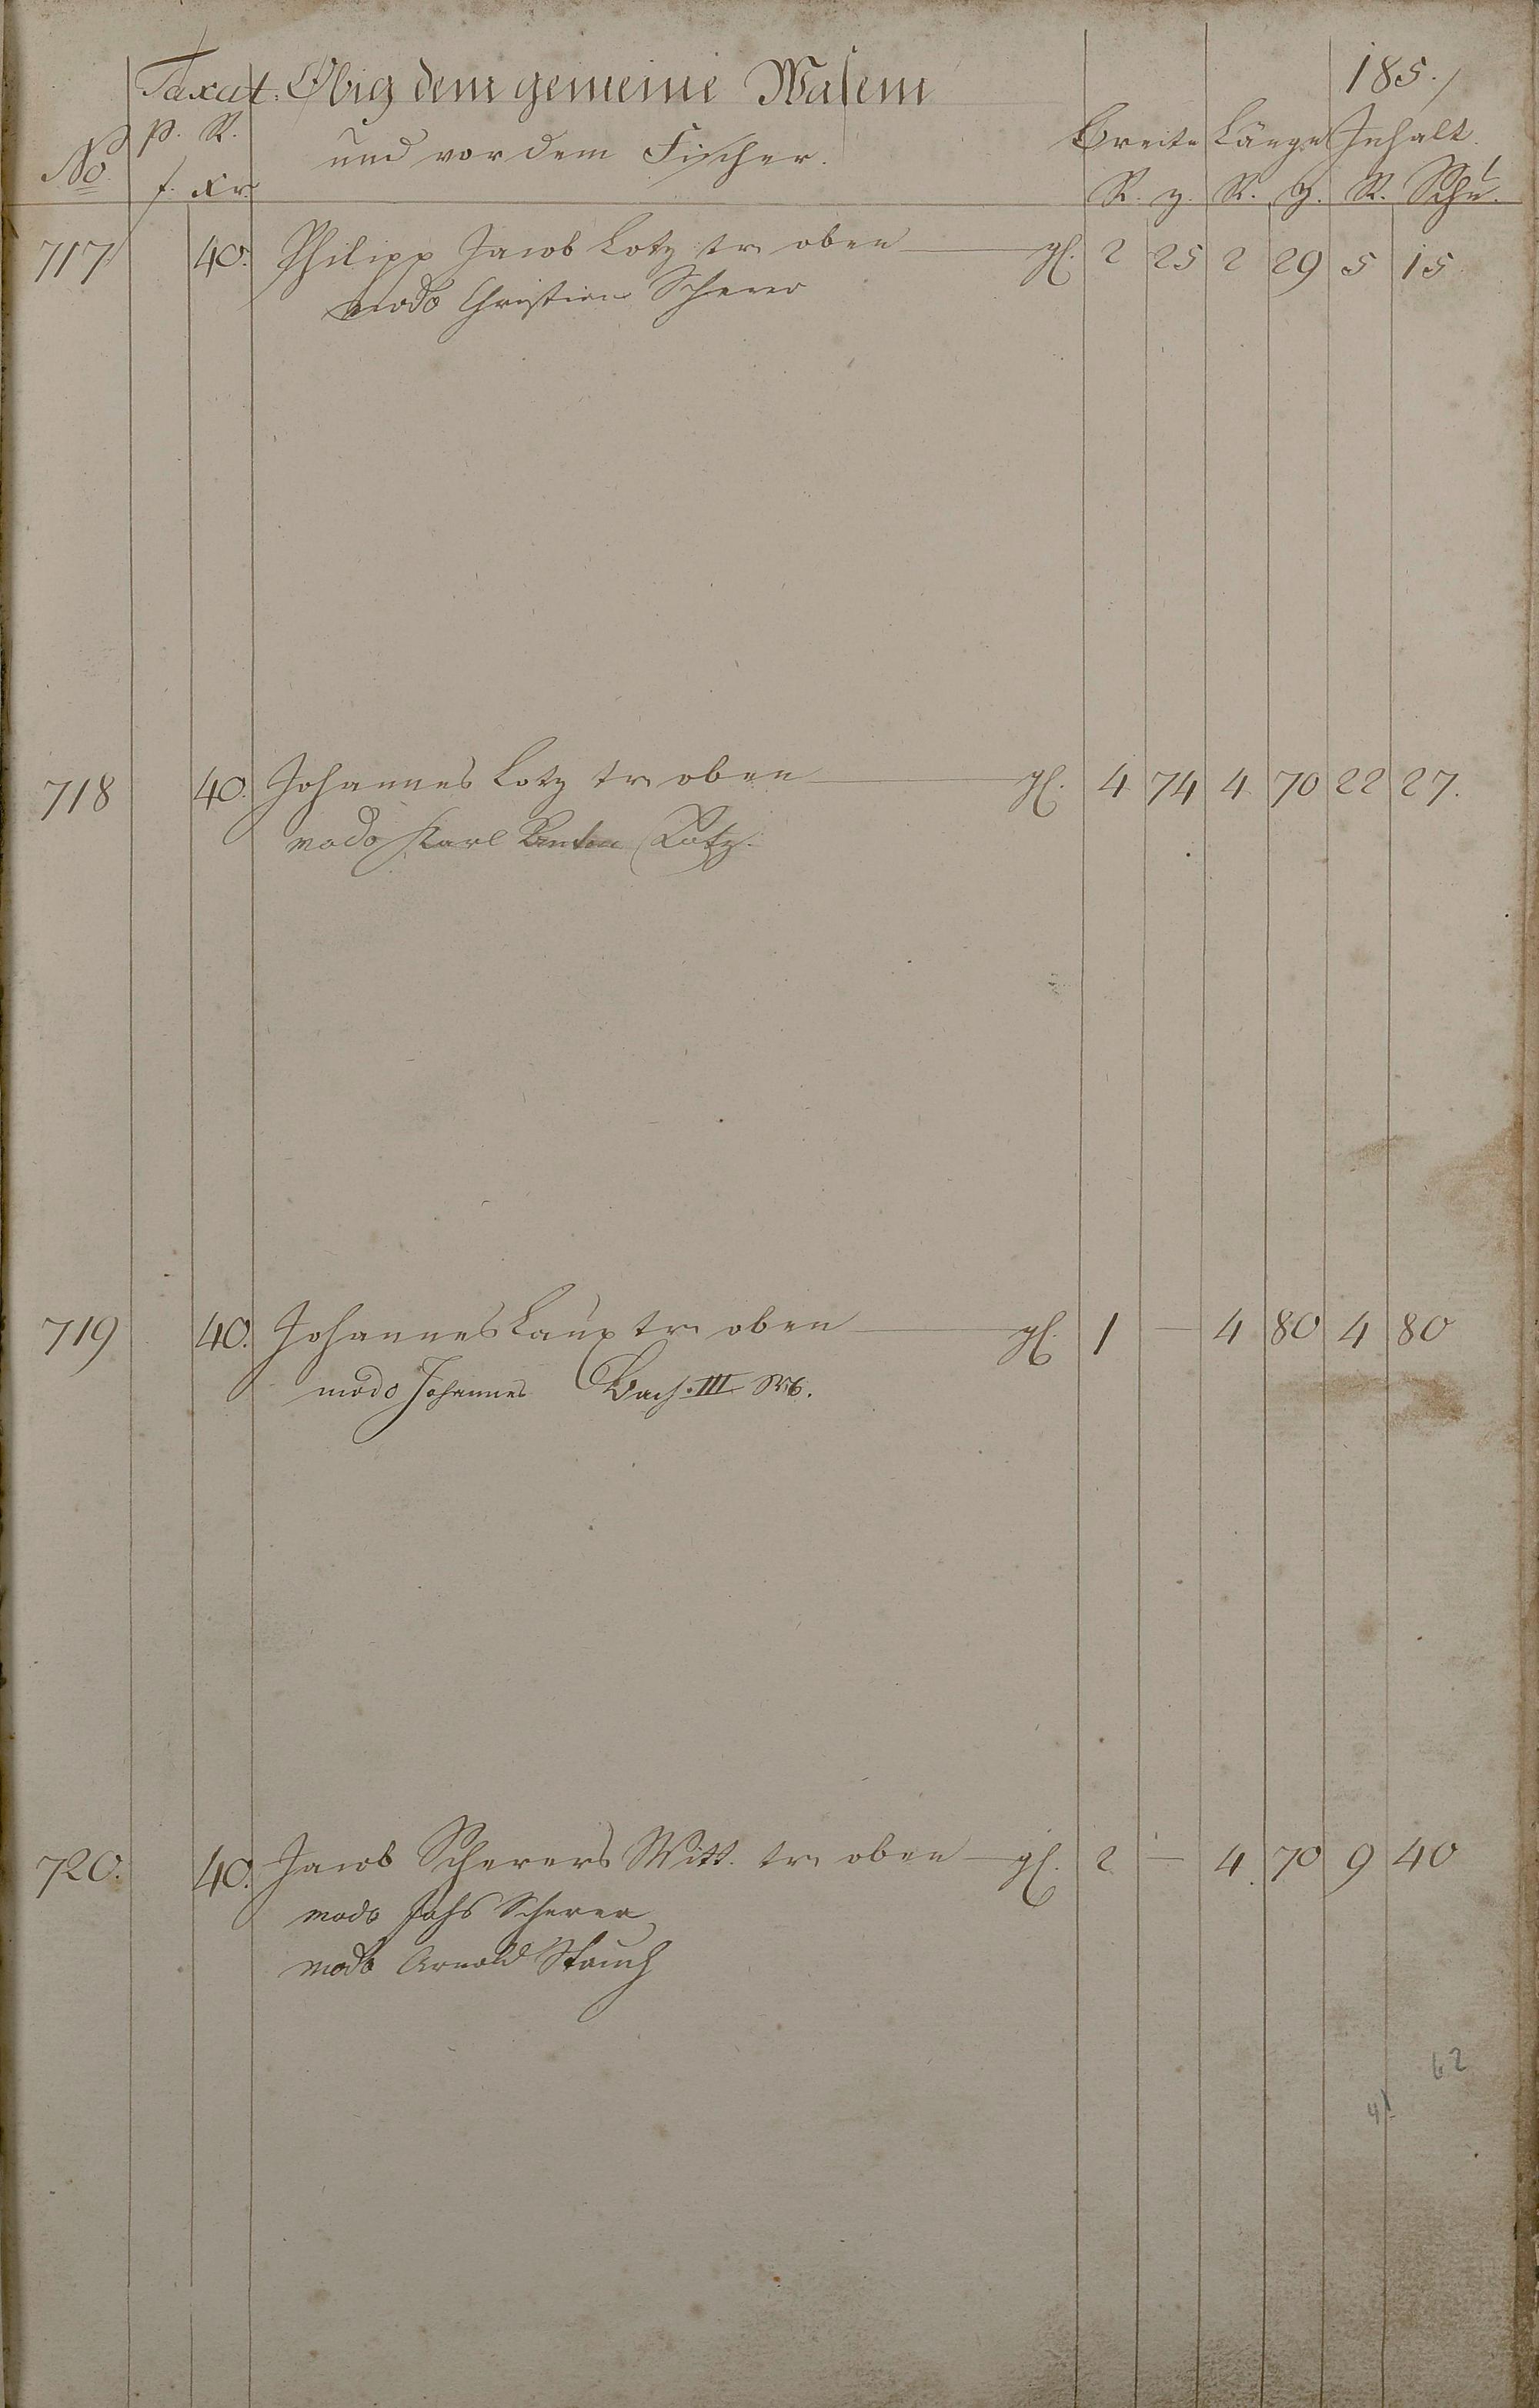 185.
Taxat. Obig dem gemeine Wasem
p. R. und vor dem Fischer. Breite Länge Inhalt.
No. f. xr. R. z. R. z. R. Schu.
717 40. Philipp Jacob Lotz tr. oben gl. 2 25 2 29 5 15
modo Christian Scherer
718 40. Johannes Lotz tr. oben gl. 4 74 4 70 22 27.
modo Karl Lotz.
719 40. Johannes Laux tr. oben gl. 1 — 4 80 4 80
modo Johannes Bach III
720. 40. Jacob Scherers Witt. tr. oben gl. 2 — 4 70 9 40
modo Johs Scherer
modo Arnold Stauch
62
41